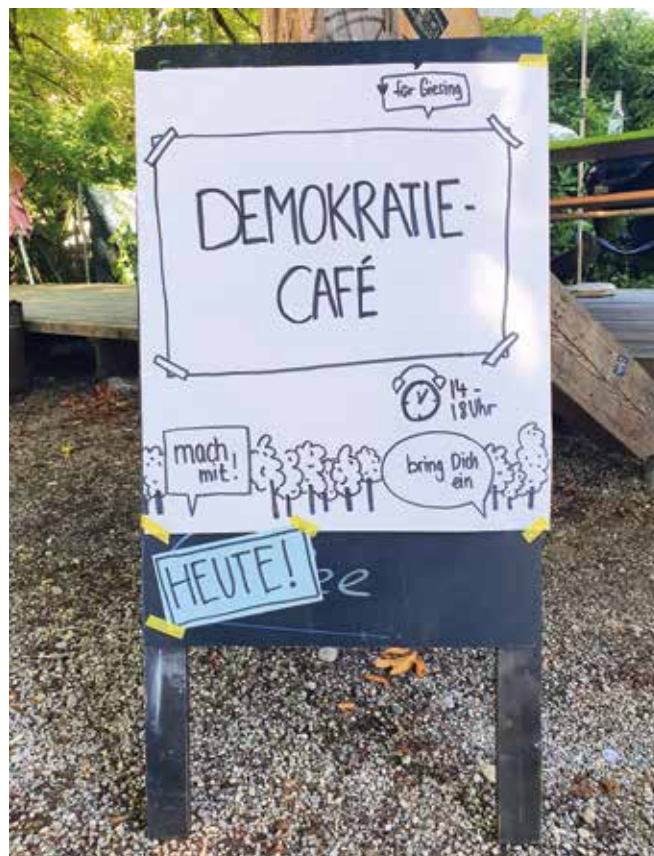 för Giesing
DEMOKRATIE-
CAFÉ
14-
18 Uhr
mach
mit!
bring Dich
ein
HEUTE!
ee